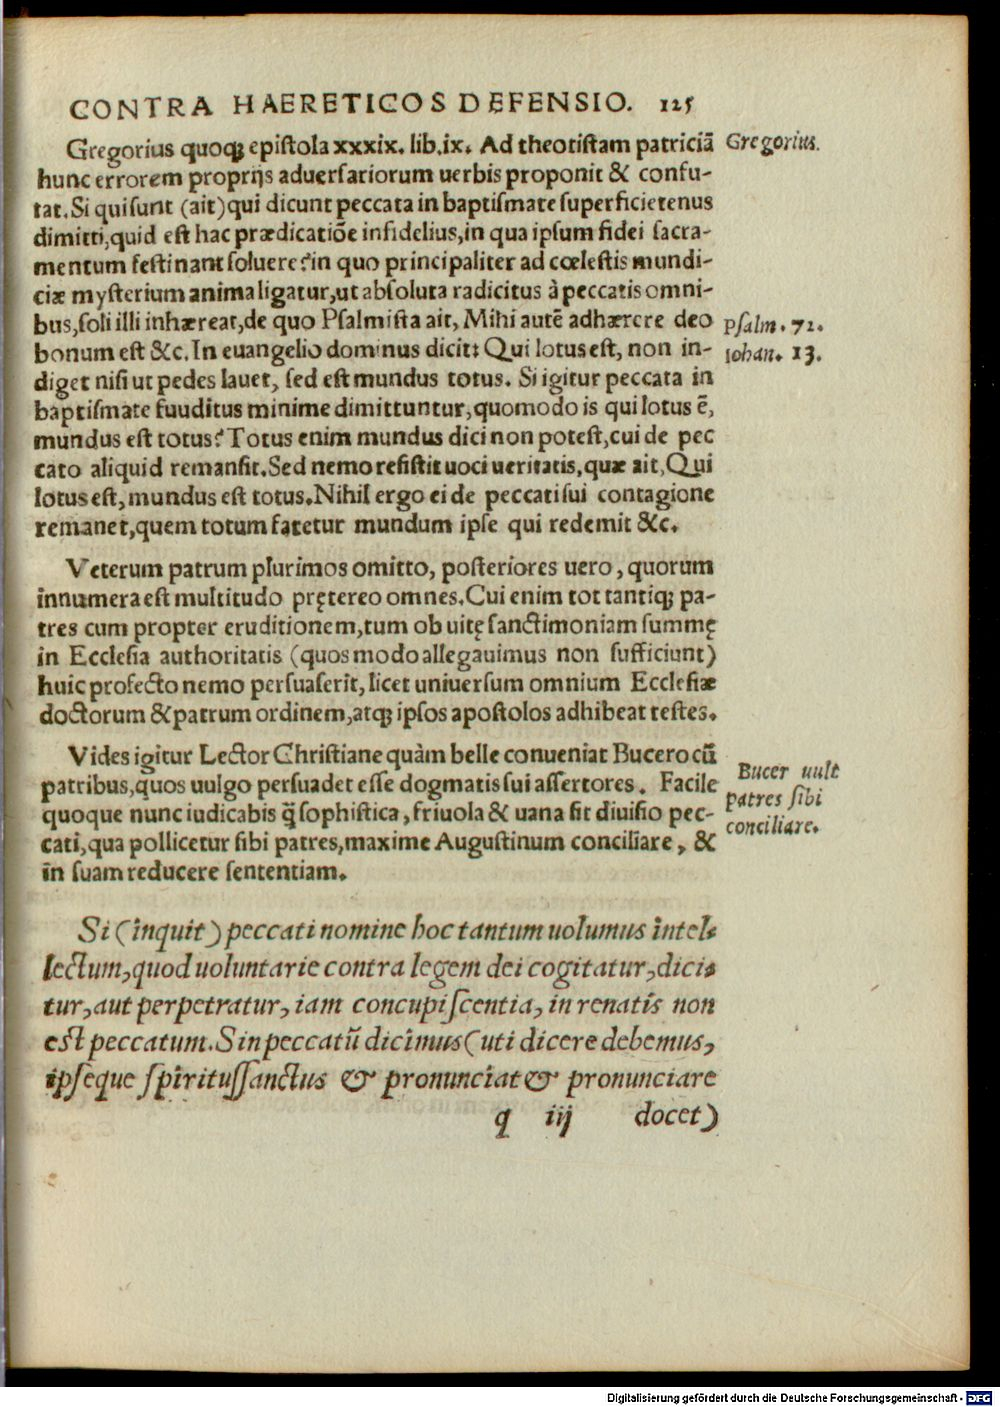 CONTRA HAERETICOS DEFENSIO. 125
Gregorius quoqꝫ epiſtola xxxix. lib.ix. Ad theotiſtam patriciā
Gregorius.
hunc errorem proprijs aduerſariorum uerbis proponit & confu-
tat. Si qui ſunt (ait) qui dicunt peccata in baptiſmate ſuperficietenus
dimitti, quid eſt hac prædicatiōe infidelius, in qua ipſum fidei ſacra-
mentum feſtinant ſoluere? in quo principaliter ad cœleſtis mundi-
ciæ myſterium anima ligatur, ut abſoluta radicitus à peccatis omni-
bus, ſoli illi inhæreat, de quo Pſalmiſta ait, Mihi autē adhærere deo
Pſalm. 72.
bonum eſt &c. In euangelio dominus dicit: Qui lotus eſt, non in-
Iohan. 13.
diget niſi ut pedes lauet, ſed eſt mundus totus. Si igitur peccata in
baptiſmate fuuditus minime dimittuntur, quomodo is qui lotus ē,
mundus eſt totus? Totus enim mundus dici non poteſt, cui de pec
cato aliquid remanſit. Sed nemo reſiſtit uoci ueritatis, quæ ait, Qui
lotus eſt, mundus eſt totus. Nihil ergo ei de peccati ſui contagione
remanet, quem totum fatetur mundum ipſe qui redemit &c.
Veterum patrum plurimos omitto, poſteriores uero, quorum
innumera eſt multitudo prętereo omnes. Cui enim tot tantiqꝫ pa-
tres cum propter eruditionem, tum ob uitę ſanctimoniam ſummę
in Eccleſia authoritatis (quos modo allegauimus non ſufficiunt)
huic profecto nemo perſuaſerit, licet uniuerſum omnium Eccleſiæ
doctorum & patrum ordinem, atqꝫ ipſos apoſtolos adhibeat teſtes.
Vides igitur Lector Chriſtiane quàm belle conueniat Bucero cū
patribus, quos uulgo perſuadet eſſe dogmatis ſui aſſertores. Facile
Bucer uult
quoque nunc iudicabis q̃ ſophiſtica, friuola & uana ſit diuiſio pec-
patres ſibi
cati, qua pollicetur ſibi patres, maxime Auguſtinum conciliare, &
conciliare.
in ſuam reducere ſententiam.
Si (inquit) peccati nomine hoc tantum uolumus intel-
lectum, quod uoluntarie contra legem dei cogitatur, dici-
tur, aut perpetratur, iam concupiſcentia, in renatis non
eſt peccatum. Sin peccatū dicimus (uti dicere debemus,
ipſeque ſpirituſſanctus & pronunciat & pronunciare
q iij docet)
Digitalisierung gefördert durch die Deutsche Forschungsgemeinschaft - DFG